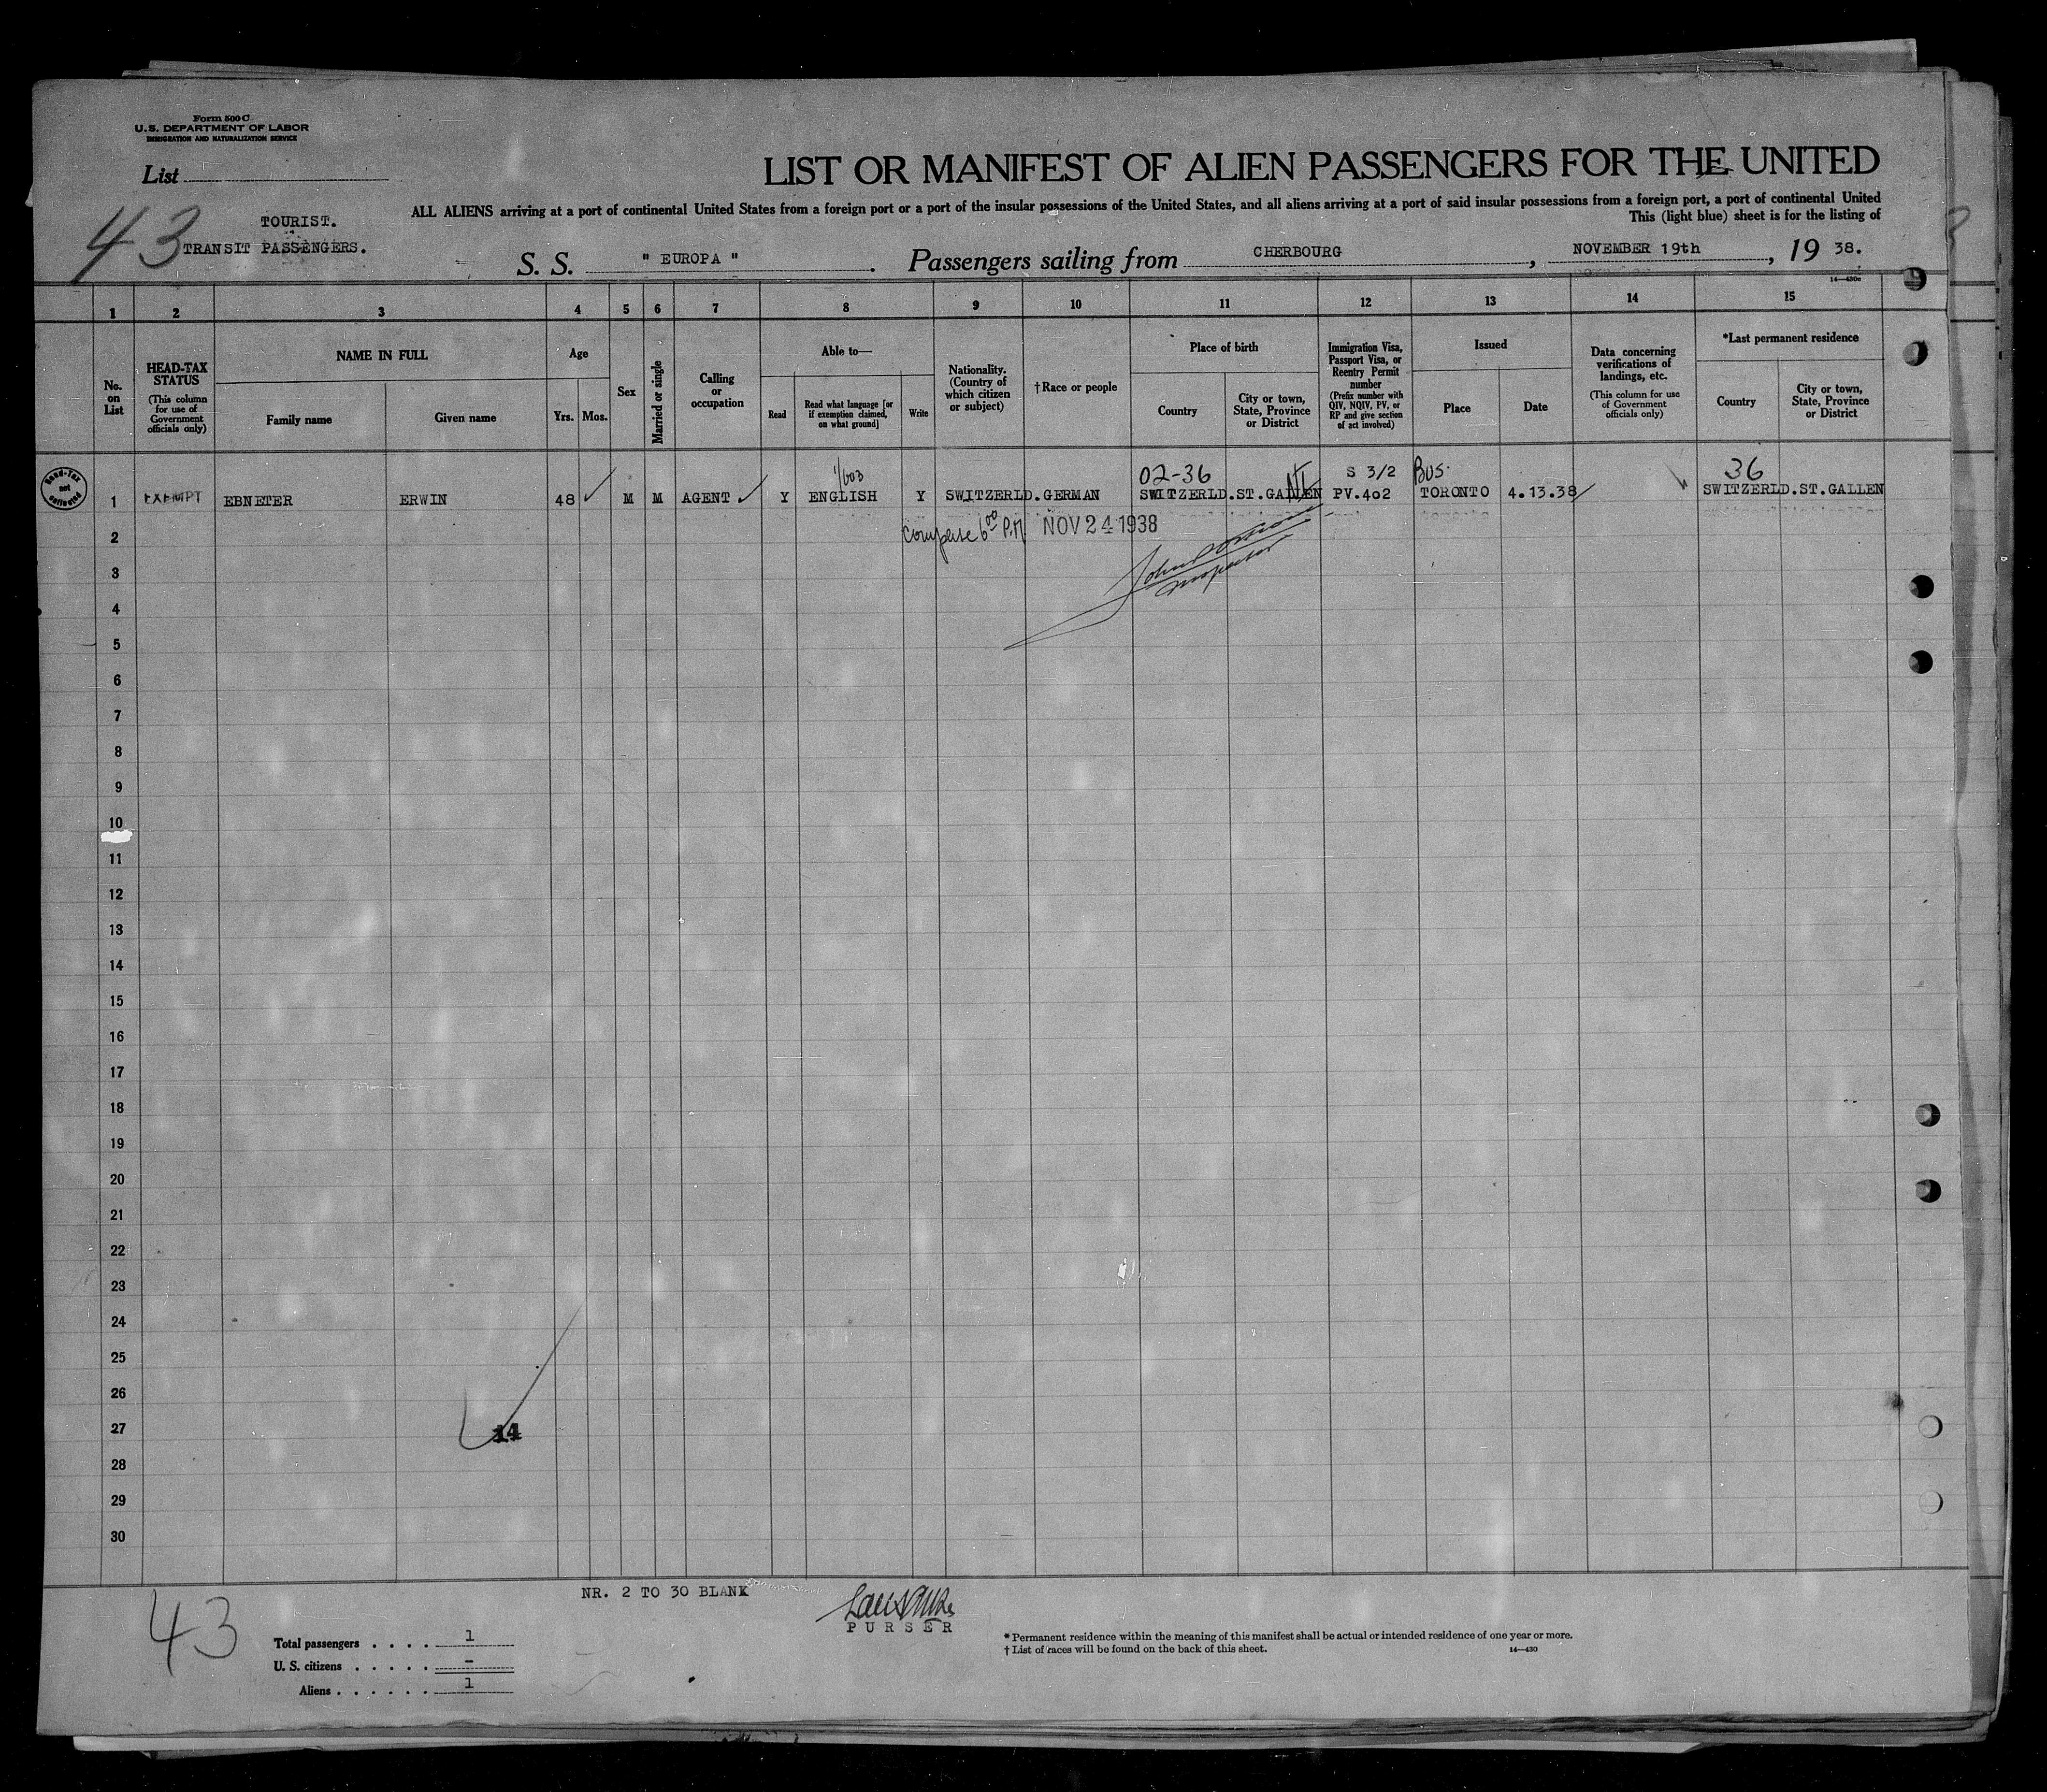 Form 500 C
U.S. DEPARTMENT OF LABOR
IMMIGRATION AND NATURALIZATION SERVICE
List
LIST OR MANIFEST OF ALIEN PASSENGERS FOR THE UNITED
ALL ALIENS arriving at a port of continental United States from a foreign port or a port of the insular possessions of the United States, and all aliens arriving at a port of said insular possessions from a foreign port, a port of continental United
This (light blue) sheet is for the listing of
43
TOURIST.
TRANSIT PASSENGERS.
S. S. " EUROPA " . Passengers sailing from CHERBOURG , NOVEMBER 19th , 19 38.
14—430a
1 2 3 4 5 6 7 8 9 10 11 12 13 14 15
No. on List
HEAD-TAX STATUS (This column for use of Government officials only)
NAME IN FULL
Family name
Given name
Age
Yrs. Mos.
Sex
Married or single
Calling or occupation
Able to—
Read
Read what language [or if exemption claimed, on what ground]
Write
Nationality. (Country of which citizen or subject)
†Race or people
Place of birth
Country
City or town, State, Province or District
Immigration Visa, Passport Visa, or Reentry Permit number (Prefix number with QIV, NQIV, PV, or RP and give section of act involved)
Issued
Place
Date
Data concerning verifications of landings, etc. (This column for use of Government officials only)
*Last permanent residence
Country
City or town, State, Province or District
Head-Tax not collected
02-36 S 3/2 Bus. 36
1 EXEMPT EBNETER ERWIN 48 M M AGENT Y ENGLISH Y SWITZERLD. GERMAN SWITZERLD. ST. GALLEN PV.402 TORONTO 4.13.38 SWITZERLD. ST. GALLEN
2 6 00 P.M NOV 24 1938
3 Inspector
4
5
6
7
8
9
10
11
12
13
14
15
16
17
18
19
20
21
22
23
24
25
26
27 14
28
29
30
NR. 2 TO 30 BLANK
43
PURSER
Total passengers . . . . 1
U. S. citizens . . . . . -
Aliens . . . . . . 1
* Permanent residence within the meaning of this manifest shall be actual or intended residence of one year or more.
† List of races will be found on the back of this sheet.
14—430